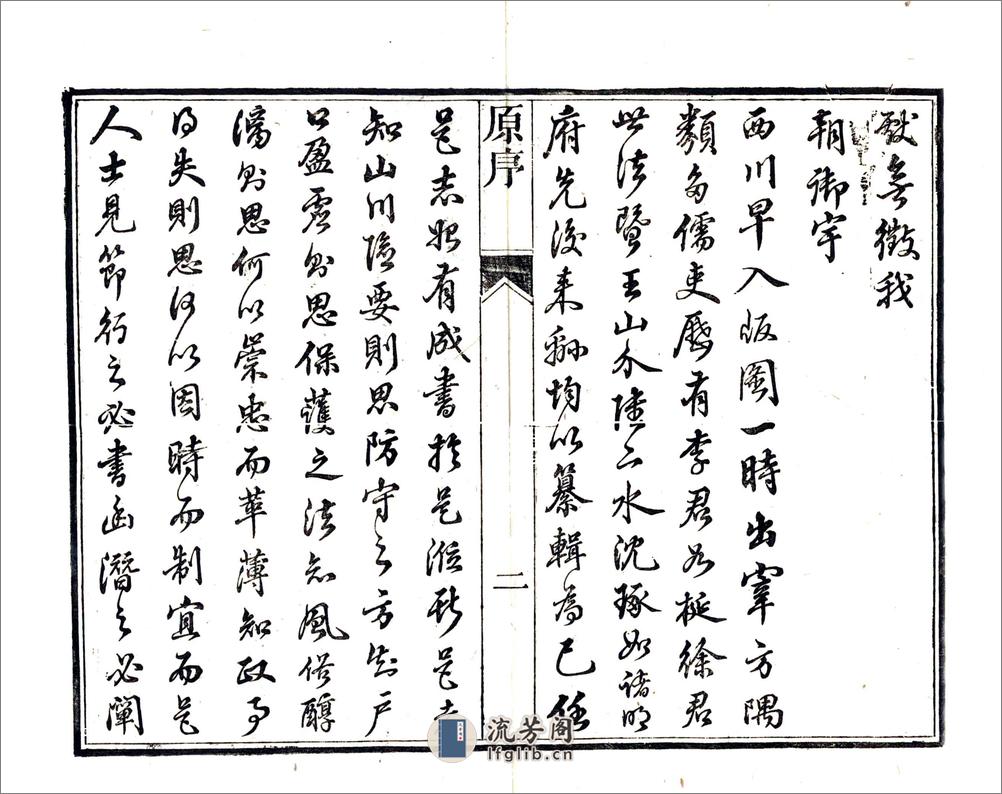 獻無徵我
朝御宇
西川早入版圖一時出宰方隅
類多儒吏歷有李君如梃徐君
此法暨王山介陸二水沈琢如諸明
府先後來茲均以纂輯為己任
原序
二
是志始有成書於是涖斯邑者
知山川險要則思防守之方知戶
口盈虛則思保護之法知風俗醇
漓則思何以崇忠而革薄知政事
得失則思何以因時而制宜而是
人士見節行之必書幽潛之必闡
流芳阁
lfglib.cn